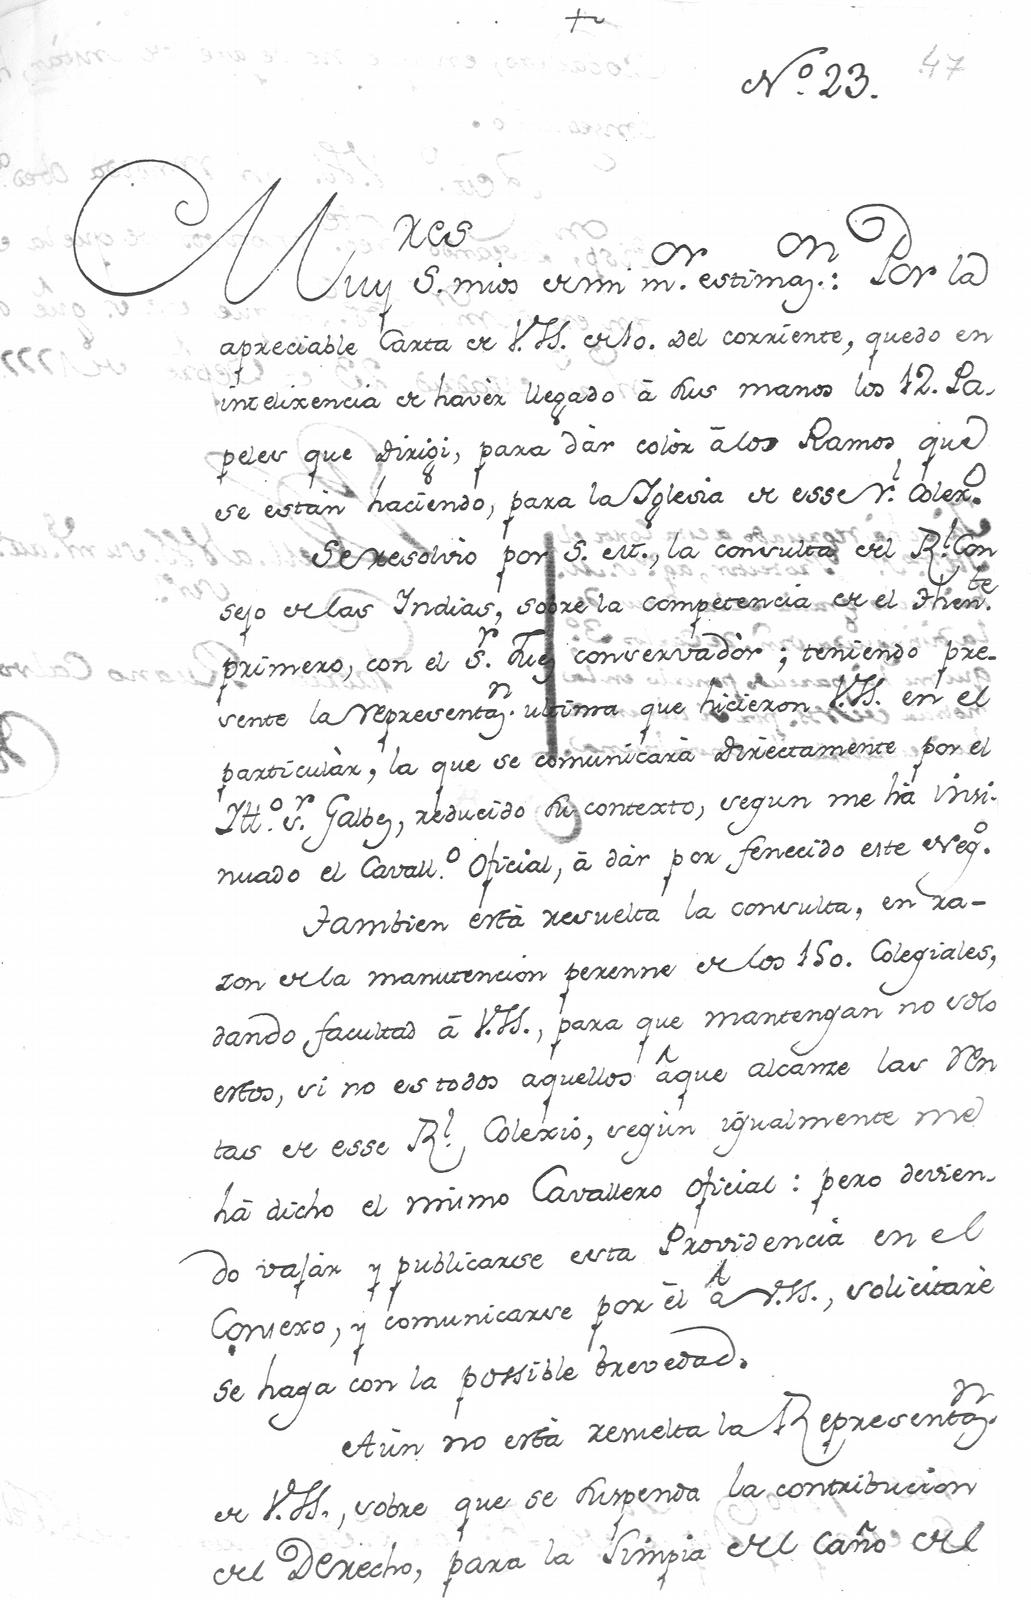 +
47
Nº. 23.
Muy S.res mios de mi m.or estimaz.on: Por la
apreciable Carta de V.SS. de 10. del corriente, quedo en
intelixencia de havèr llegado â sus manos los 12. Pa-
peles que dirigi, para dàr colòr âlos Ramos, que
se están haciendo, para la Iglesia de esse R.l Colex.o
Se resolvio por S. M., la consulta del R.l Con
sejo de las Indias, sobre la competencia de el Then.te
primero, con el S.r Juez conservadòr; teniendo pre-
sente la representaz.n ultima que hicieron V.SS. en el
particulàr, la que se comunicarà directamente por el
Ill.o S.r Galbez, reducido su contexto, segun me hà insi-
nuado el Cavall.o Oficial, â dàr por fenecido este Neg.o
Tambien està resuelta la consulta, en ra-
zon de la manutencion perenne de los 150. Colegiales,
dando facultad â V.SS., para que mantengan no solo
estos, si no es todos aquellos âque alcanze las Ren
tas de esse R.l Colexio, segùn igualmente me
hà dicho el mismo Cavallero oficial: pero devien-
do vajàr y publicarse esta Providencia en el
Consexo, y comunicarse por èl â V.SS., solicitarè
se haga con la possible brevedad.
Aùn no està resuelta la Representaz.n
de V.SS., sobre que se suspenda la contribucion
del Derecho, para la Limpia del caño del